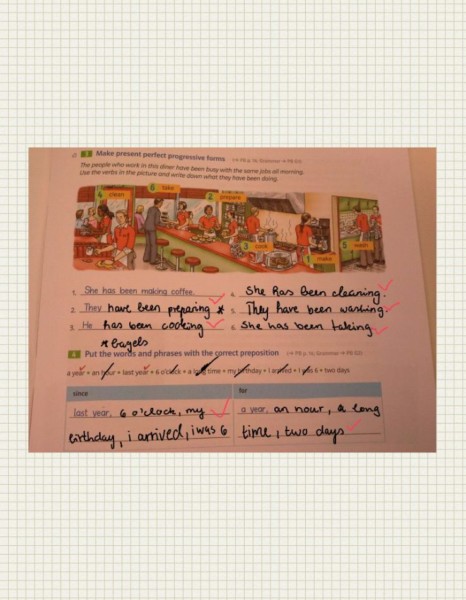 Make present perfect progressive forms
The people who work in this diner have been busy with the same jobs all morning.
Use the verbs in the picture and write down what they have been doing.
6 take
4 clean
2 prepare
3 cook
5 wash
1 make
1. She has been making coffee.
4. She has been cleaning.
2. They have been preparing *
5. They have been washing.
3. He has been cooking
6. She has been taking
* bagels
4 Put the words and phrases with the correct preposition
a year • an hour • last year • 6 o'clock • a long time • my birthday • I arrived • I was 6 • two days
since
for
last year, 6 o'clock, my
a year, an hour, a long
birthday, i arrived, i was 6
time, two days